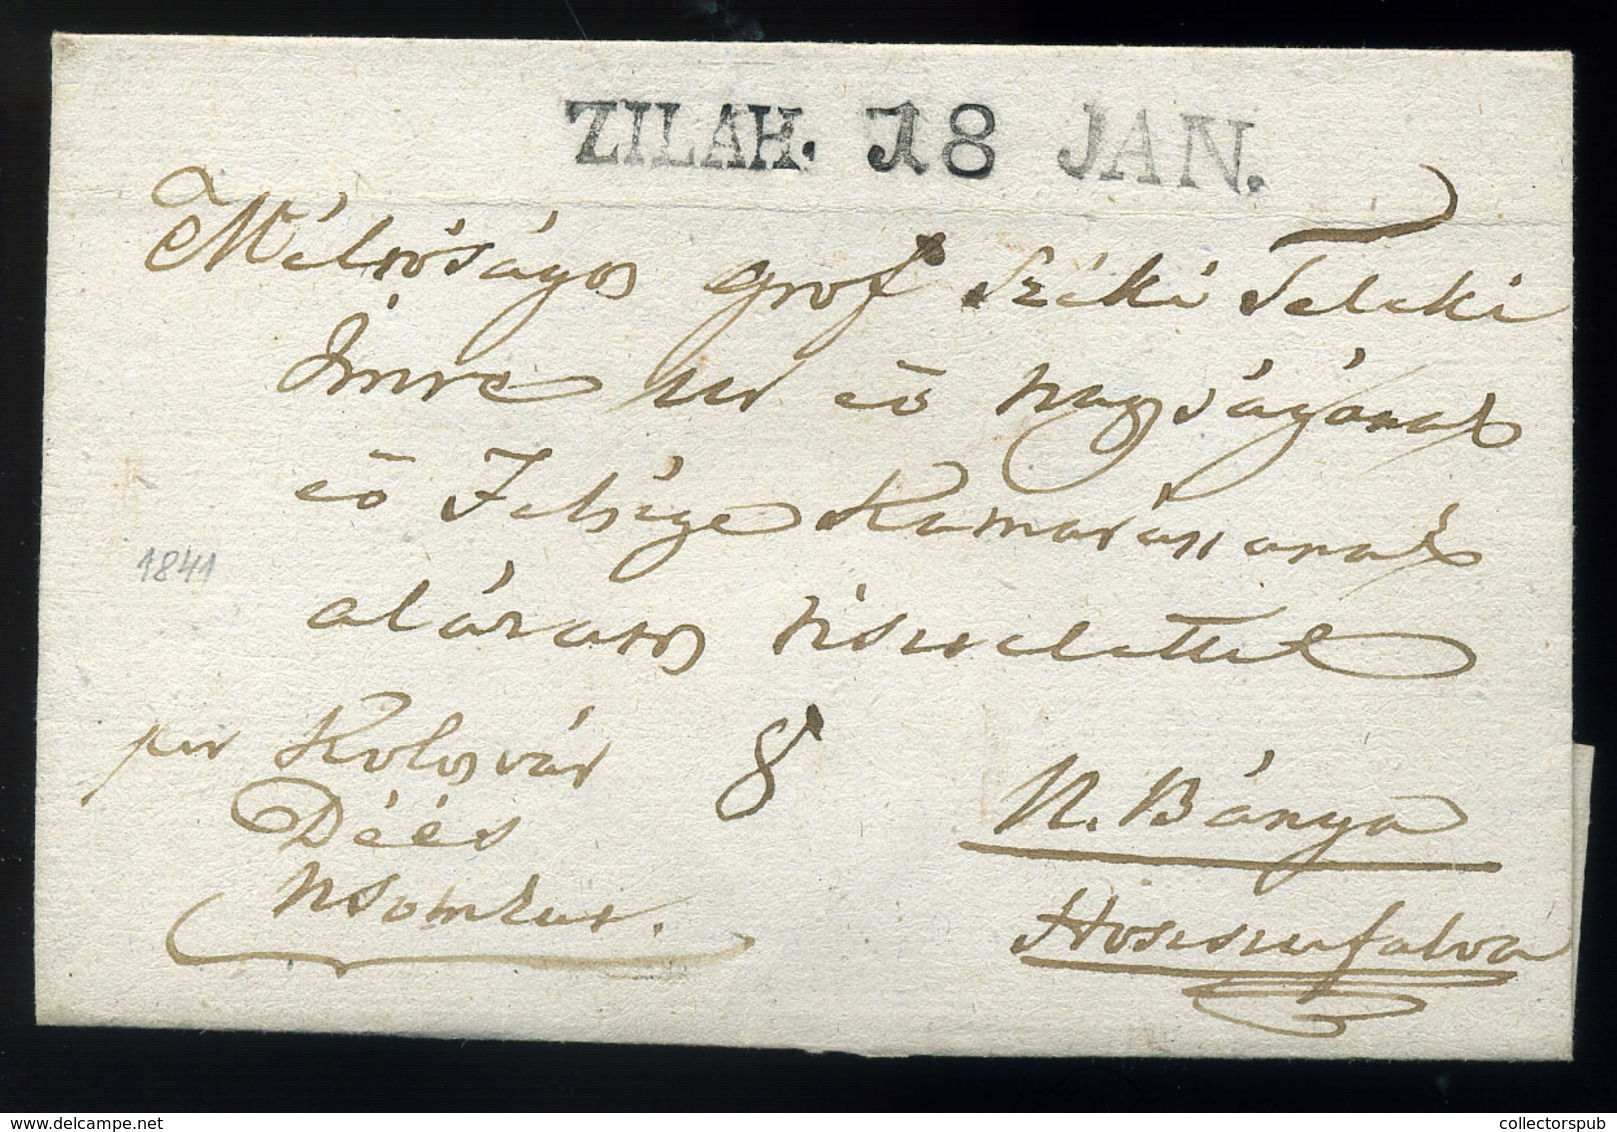 ZILAH. 18 JAN.
Méltóságos gróf Széki Teleki
Imre ur eö nagyságának
eö Felsége Kamarássanak
alázatos tisztelettel
1841
per Kolosvár 8
Déés
Nsomkut.
N. Bánya
Hosszufalva
collectorspub